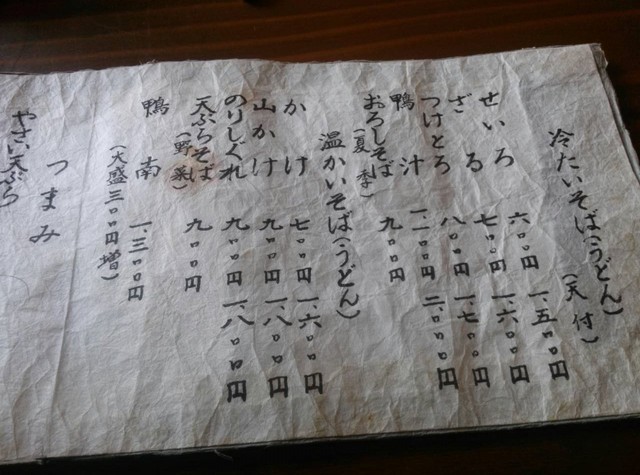 冷たいそば(うどん)
(天付)
せいろ 六〇〇円 一、五〇〇円
ざる 七〇〇円 一、六〇〇円
つけとろ 八〇〇円 一、七〇〇円
鴨汁 一、二〇〇円 二、〇〇〇円
おろしそば 九〇〇円
(夏季)
温かいそば(うどん)
かけ 七〇〇円 一、六〇〇円
山かけ 九〇〇円 一、八〇〇円
のりしぐれ 九〇〇円 一、八〇〇円
天ぷらそば 九〇〇円
(野菜)
鴨南 一、三〇〇円
(大盛三〇〇円増)
つまみ
やさい天ぷら